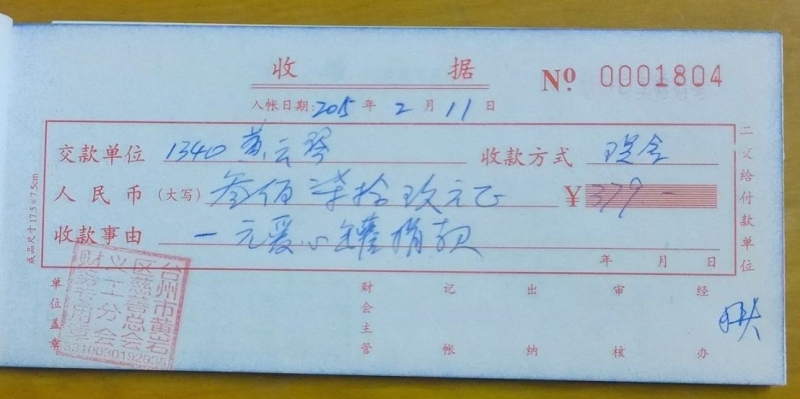 收 据
Nº 0001804
入帐日期:2015 年 2 月 11 日
交款单位 1340 黄云琴 收款方式 现金
人民币(大写) 叁佰柒拾玖元正 ¥379-
收款事由 一元爱心罐捐款
年 月 日
二义给付款单位
成品尺寸17.5×7.5cm
单位盖章
财会主管 记帐 出纳 审核 经办
台州市黄岩
区慈善总会
义工分会
财务专用章